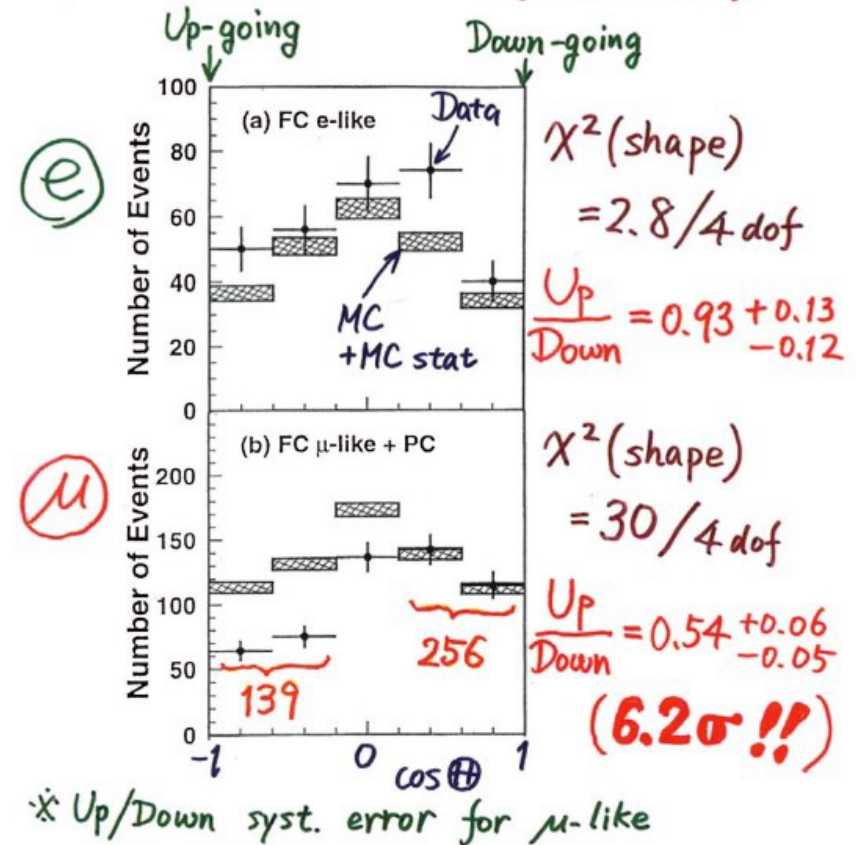 Up-going
Down-going
e
100
80
60
40
20
0
Number of Events
(a) FC e-like
Data
MC
+MC stat
χ² (shape)
= 2.8 / 4 dof
Up/Down = 0.93 +0.13 −0.12
μ
200
150
100
50
0
Number of Events
(b) FC μ-like + PC
139
256
χ² (shape)
= 30 / 4 dof
Up/Down = 0.54 +0.06 −0.05
(6.2σ !!)
-1
0
1
cos Θ
※ Up/Down syst. error for μ-like